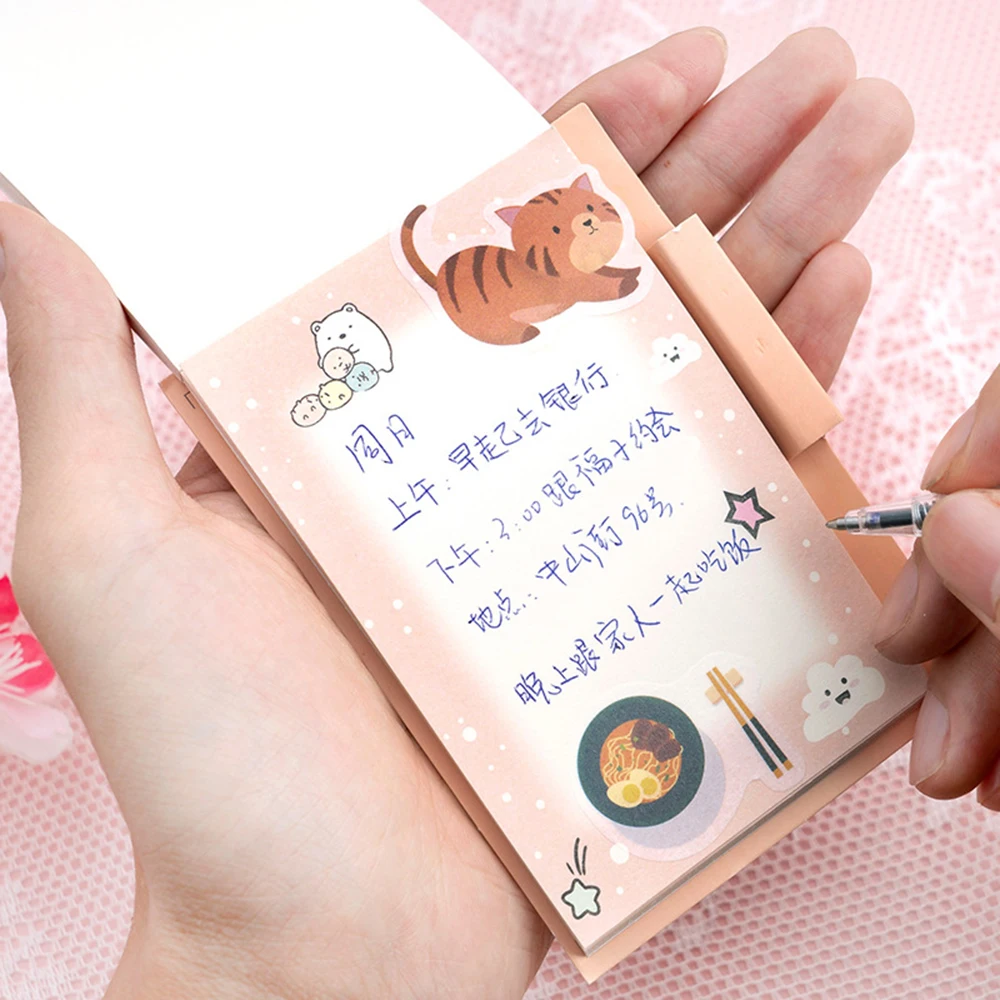 周日
上午:早起去银行
下午:3:00跟福子约会
地点:中山街96号.
晚上跟家人一起吃饭